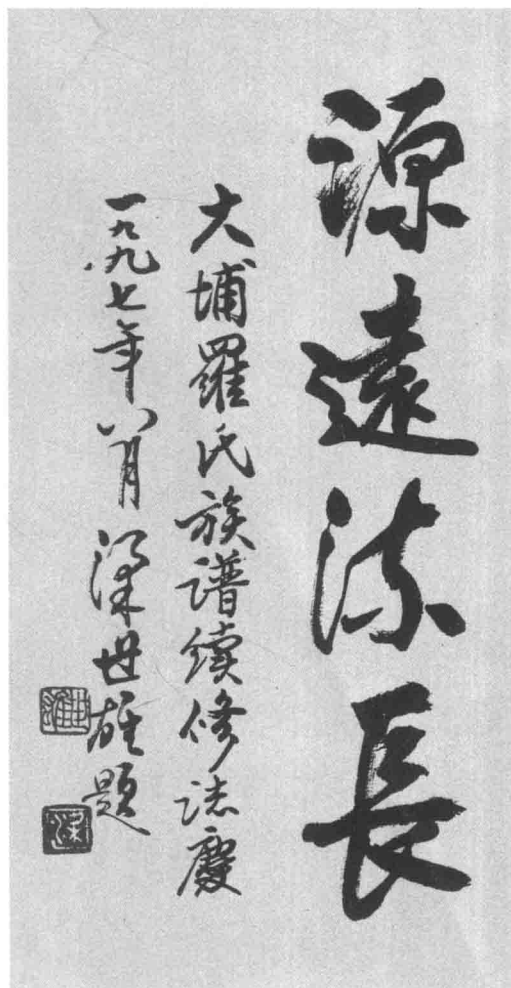 源遠流長
大埔羅氏族譜續修誌慶
一九九七年八月梁世雄題
世雄
梁